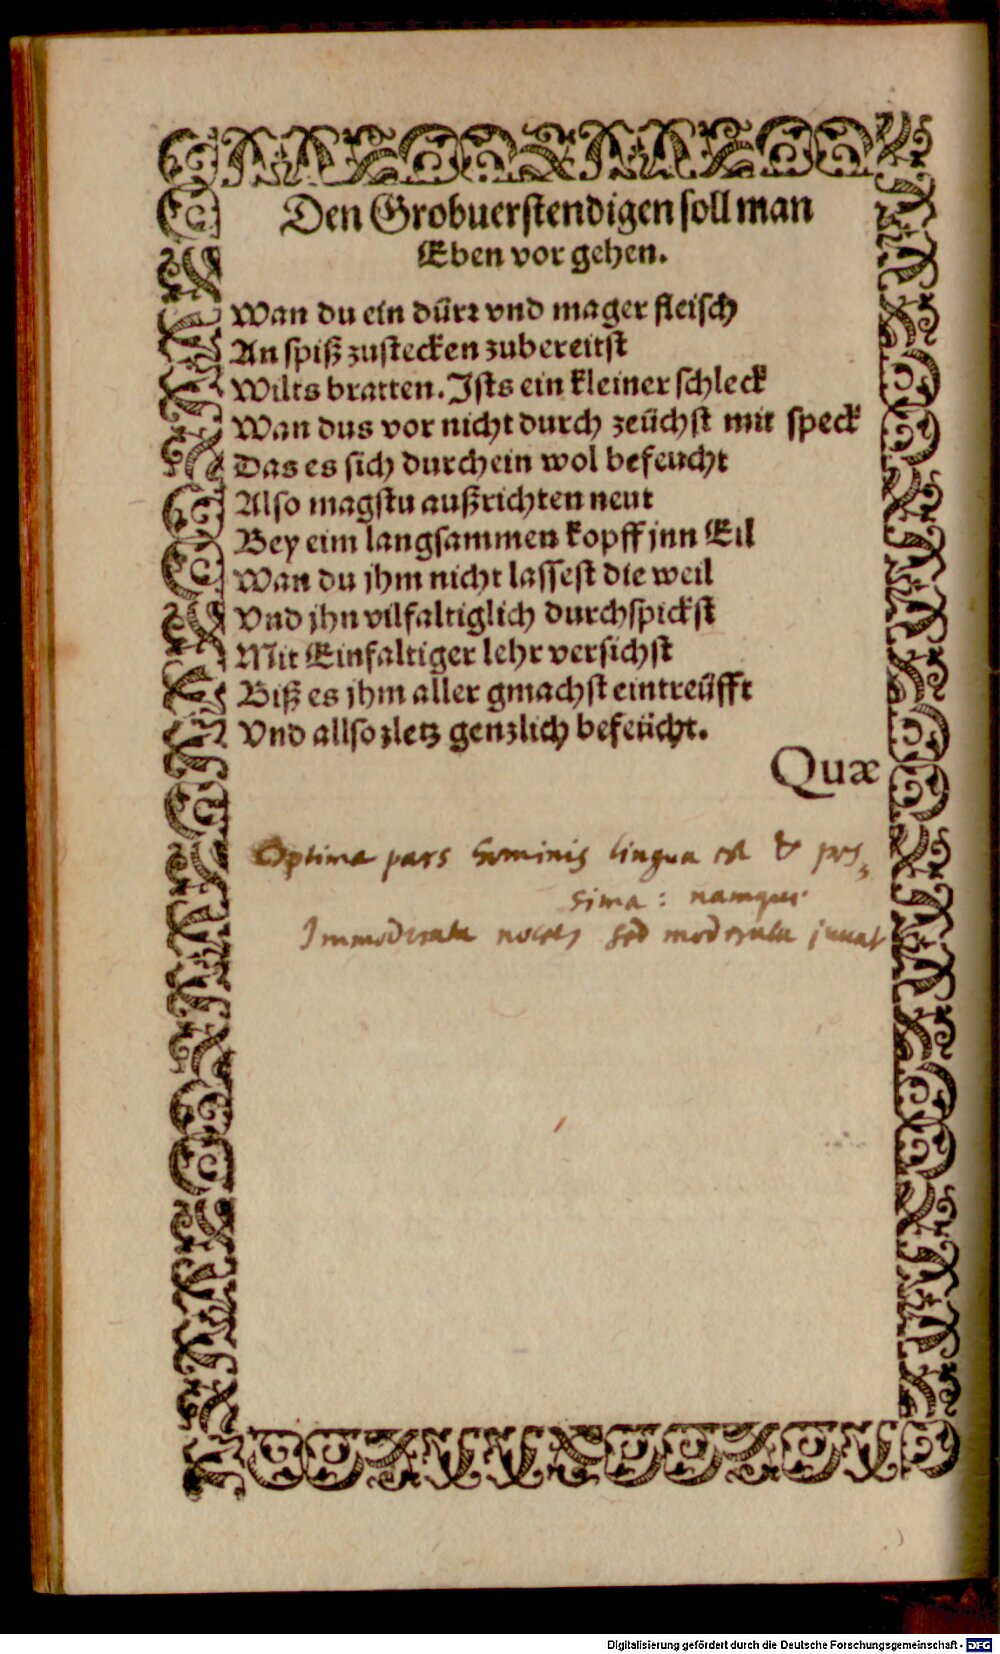 Den Grobuerstendigen soll man
Eben vor gehen.
Wan du ein dürr vnd mager fleisch
An spiß zustecken zubereitst
Wilts bratten. Ists ein kleiner schleck
Wan dus vor nicht durch zeüchst mit speck
Das es sich durchein wol befeucht
Also magstu außrichten neut
Bey eim langsammen kopff jnn Eil
Wan du jhm nicht lassest die weil
Vnd jhn vilfaltiglich durchspickst
Mit Einfaltiger lehr versichst
Biß es jhm aller gmachst eintreüfft
Vnd allso zletz genzlich befeücht.
Quæ
Optima pars hominis lingua est & pes,
sima: namque
Immoderata nocet, sed moderata juuat
Digitalisierung gefördert durch die Deutsche Forschungsgemeinschaft - DFG